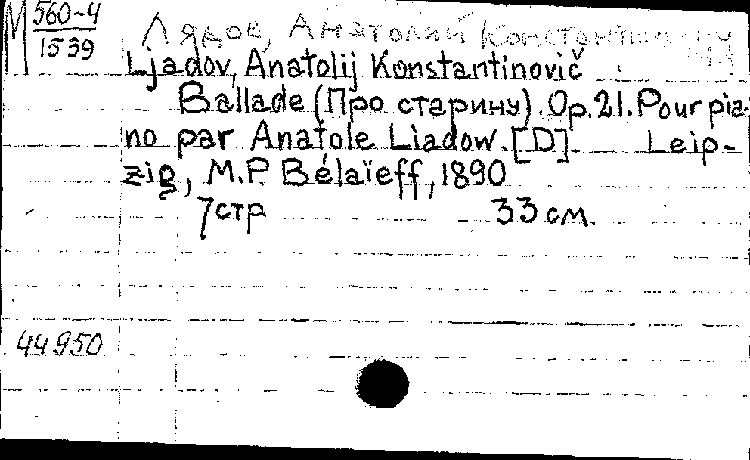 М 560-4
1539
Лядов, Анатолий Константинович
Ljadov, Anatolij Konstantinovič
Ballade (Про старину). Op. 21. Pour pia-
no par Anatole Liadow. [D] Leip-
zig, M.P. Bélaïeff, 1890
7 стр 33 см.
44950